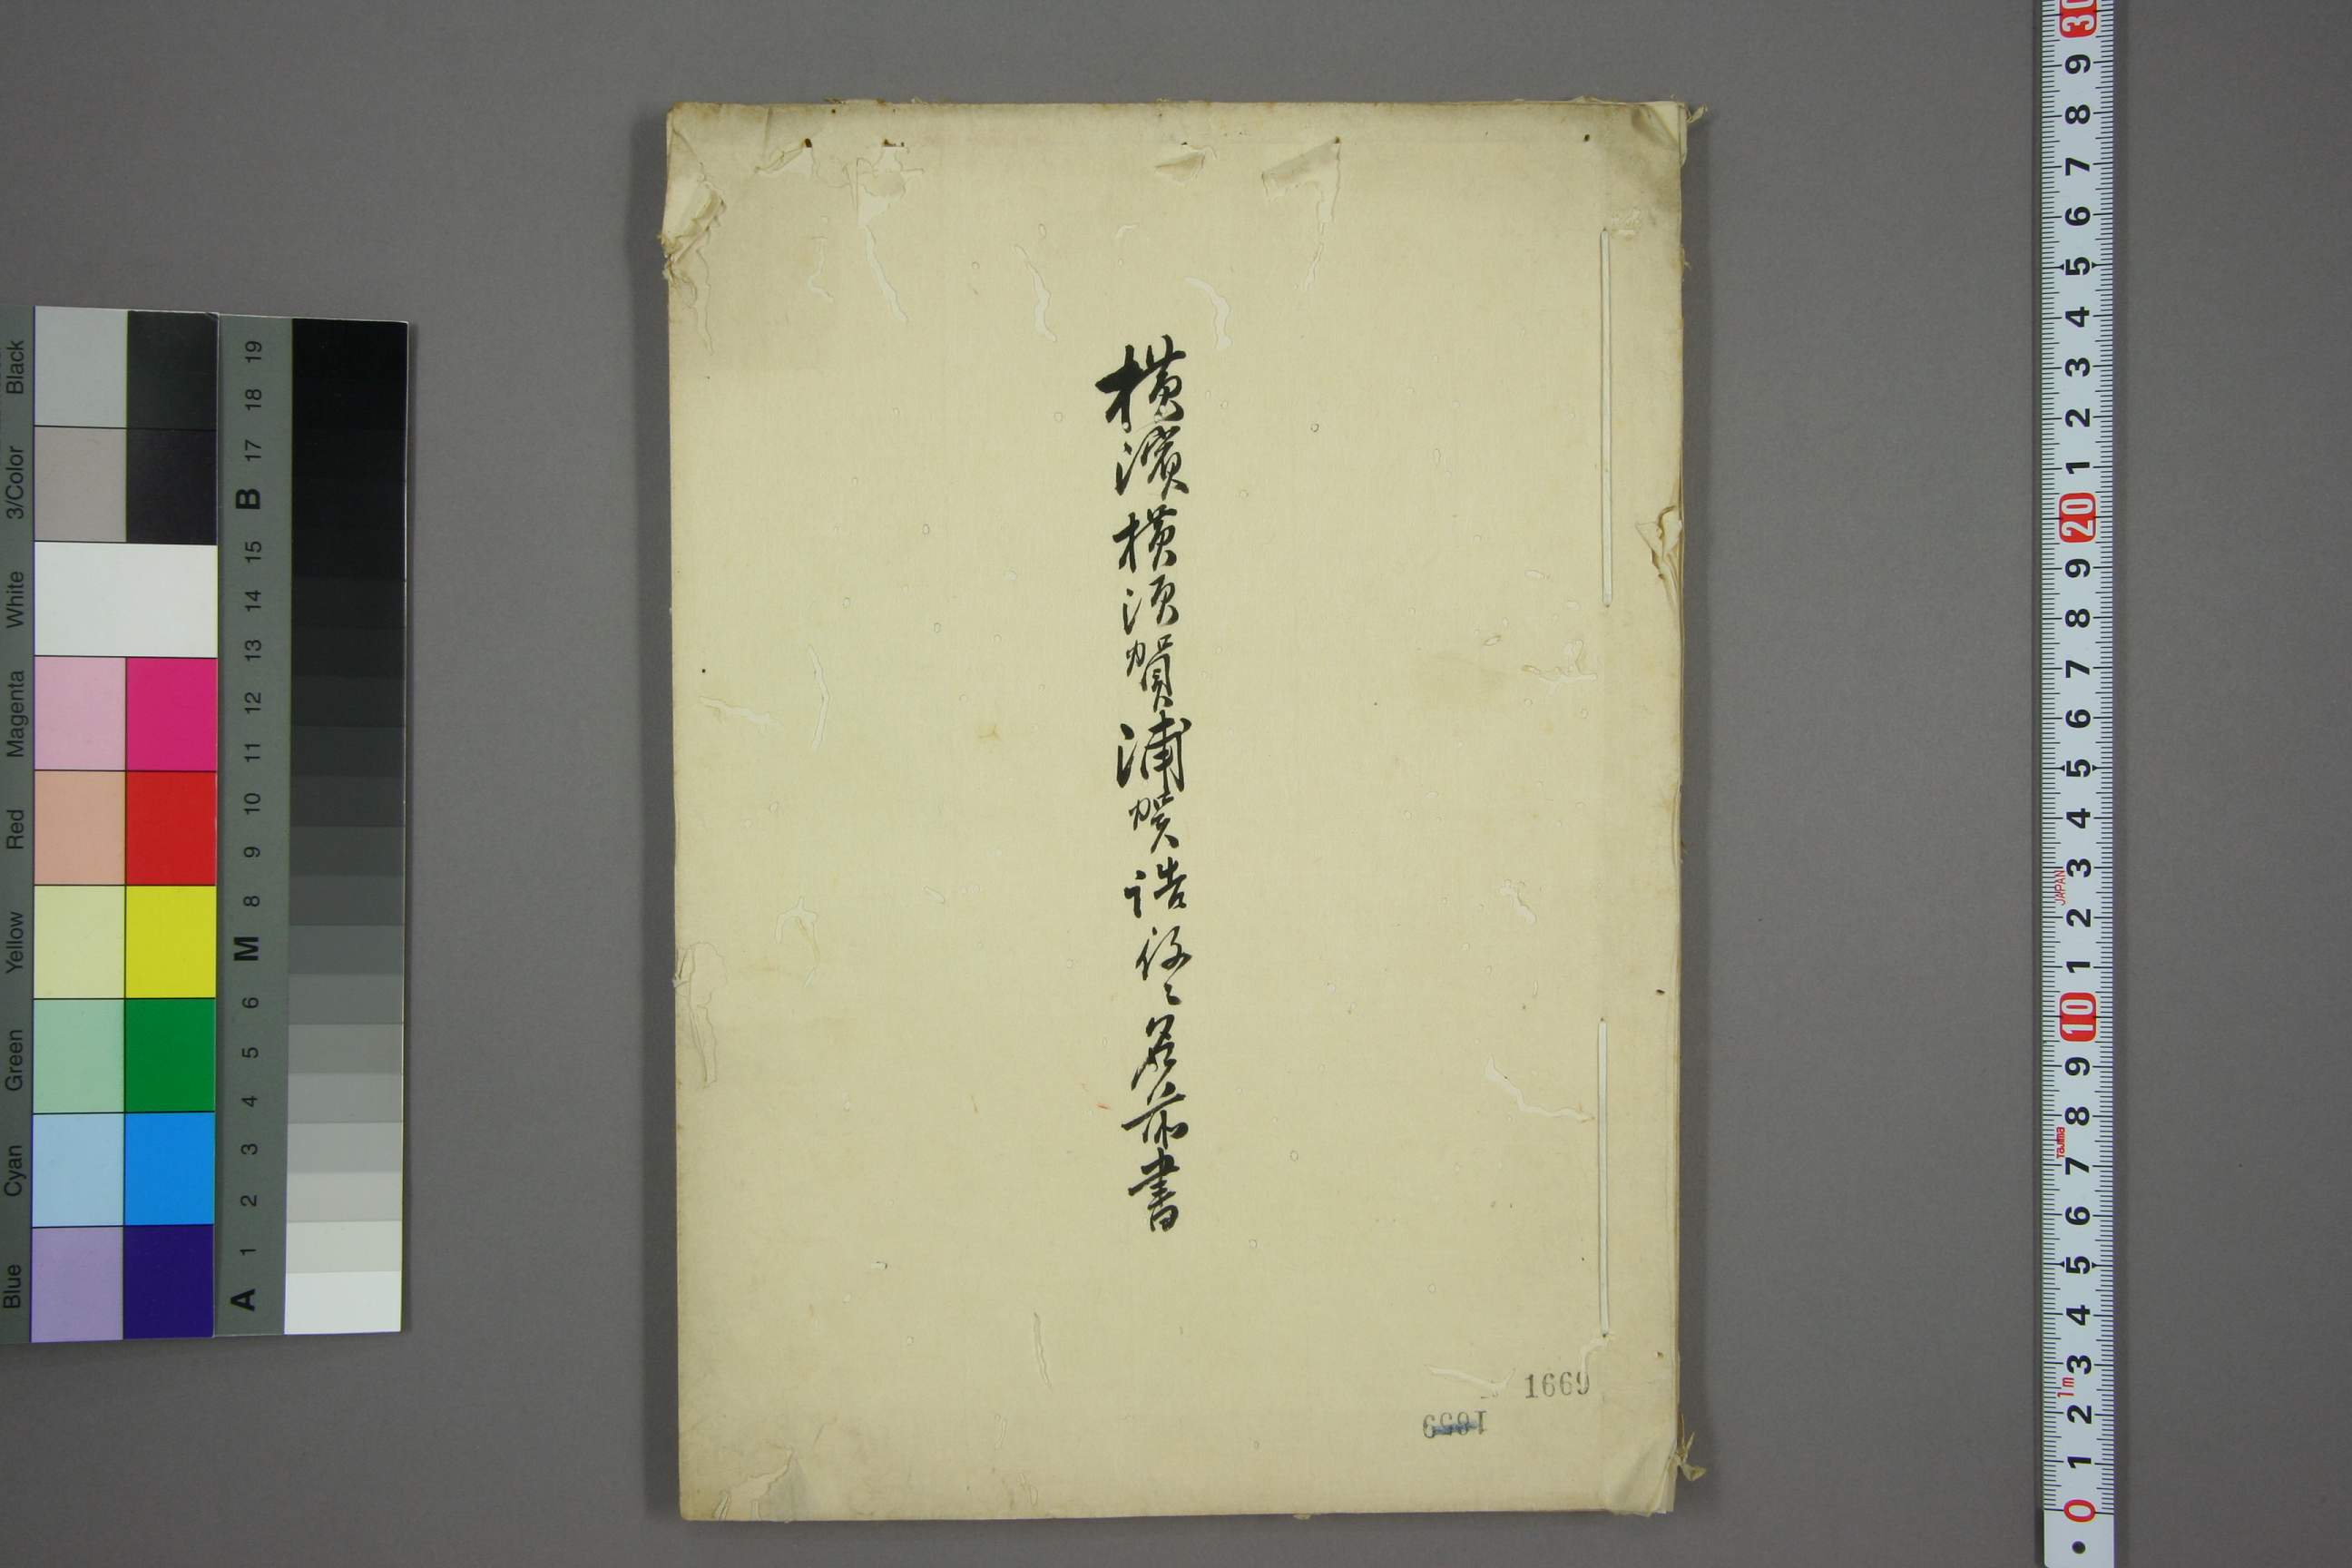 横濱横須賀浦賀詰役々名前書
1669
Blue Cyan Green Yellow Red Magenta White 3/Color Black
A 1 2 3 4 5 6 M 8 9 10 11 12 13 14 15 B 17 18 19
30 9 8 7 6 5 4 3 2 1 20 9 8 7 6 5 4 3 2 1 10 9 8 7 6 5 4 3 2 1 0
JAPAN
Tajima
1m